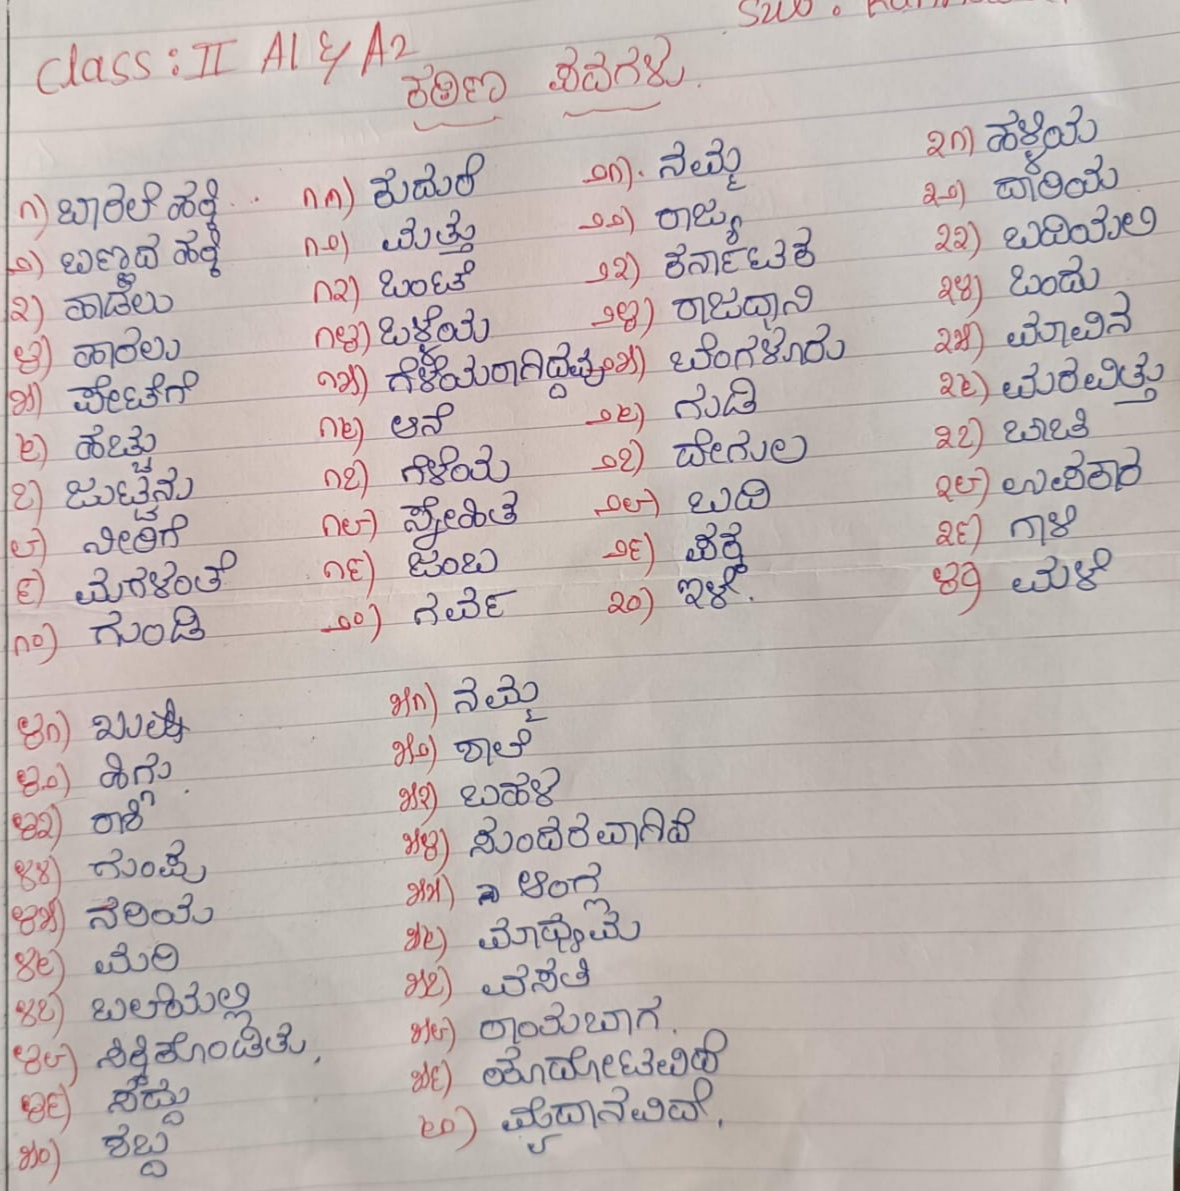 Sub :
Class : II A1 & A2
ಕಠಿಣ ಪದಗಳು.
೧) ಬಾರಲೆ ಹಕ್ಕಿ
೨) ಬಣ್ಣದ ಹಕ್ಕಿ
೩) ಹಾಡಲು
೪) ಹಾರಲು
೫) ಪೇಟೆಗೆ
೬) ಹೆಚ್ಚು
೭) ಜುಟ್ಟನು
೮) ನೀರಿಗೆ
೯) ಮರಳಂತೆ
೧೦) ಗುಂಡಿ
೧೧) ಕುದುರೆ
೧೨) ಮತ್ತು
೧೩) ಒಂಟೆ
೧೪) ಒಳ್ಳೆಯ
೧೫) ಗೆಳೆಯರಾಗಿದ್ದವು
೧೬) ಆನೆ
೧೭) ಗೆಳೆಯ
೧೮) ಸ್ನೇಹಿತ
೧೯) ಜಂಬ
೨೦) ಗರ್ವ
೨೧). ನಮ್ಮ
೨೨) ರಾಜ್ಯ
೨೩) ಕರ್ನಾಟಕ
೨೪) ರಾಜಧಾನಿ
೨೫) ಬೆಂಗಳೂರು
೨೬) ಗುಡಿ
೨೭) ದೇಗುಲ
೨೮) ಬದಿ
೨೯) ಪಕ್ಕ
೩೦) ಇಳೆ.
೩೧) ಹಳ್ಳಿಯ
೩೨) ದಾರಿಯ
೩೩) ಬದಿಯಲಿ
೩೪) ಒಂದು
೩೫) ಮಾವಿನ
೩೬) ಮರವಿತ್ತು
೩೭) ಬಾಬತಿ
೩೮) ಉಪಕಾರ
೩೯) ಗಾಳಿ
೪೦) ಮಳೆ
೪೧) ಖುಷಿ
೪೨) ಹಿಗ್ಗು
೪೩) ರಾಶಿ
೪೪) ಗುಂಪು
೪೫) ನರಿಯು
೪೬) ಮರಿ
೪೭) ಬಲೆಯಲ್ಲಿ
೪೮) ಸಿಕ್ಕಿಕೊಂಡಿತು.
೪೯) ಸದ್ದು
೫೦) ಶಬ್ದ
೫೧) ನಮ್ಮ
೫೨) ಶಾಲೆ
೫೩) ಬಹಳ
೫೪) ಸುಂದರವಾಗಿದೆ
೫೫) ಆಂಗ್ಲ
೫೬) ಮಾಧ್ಯಮ
೫೭) ವಸತಿ
೫೮) ರಾಯಬಾಗ.
೫೯) ಕೈದೋಟವಿದೆ
೬೦) ಮೈದಾನವಿದೆ.